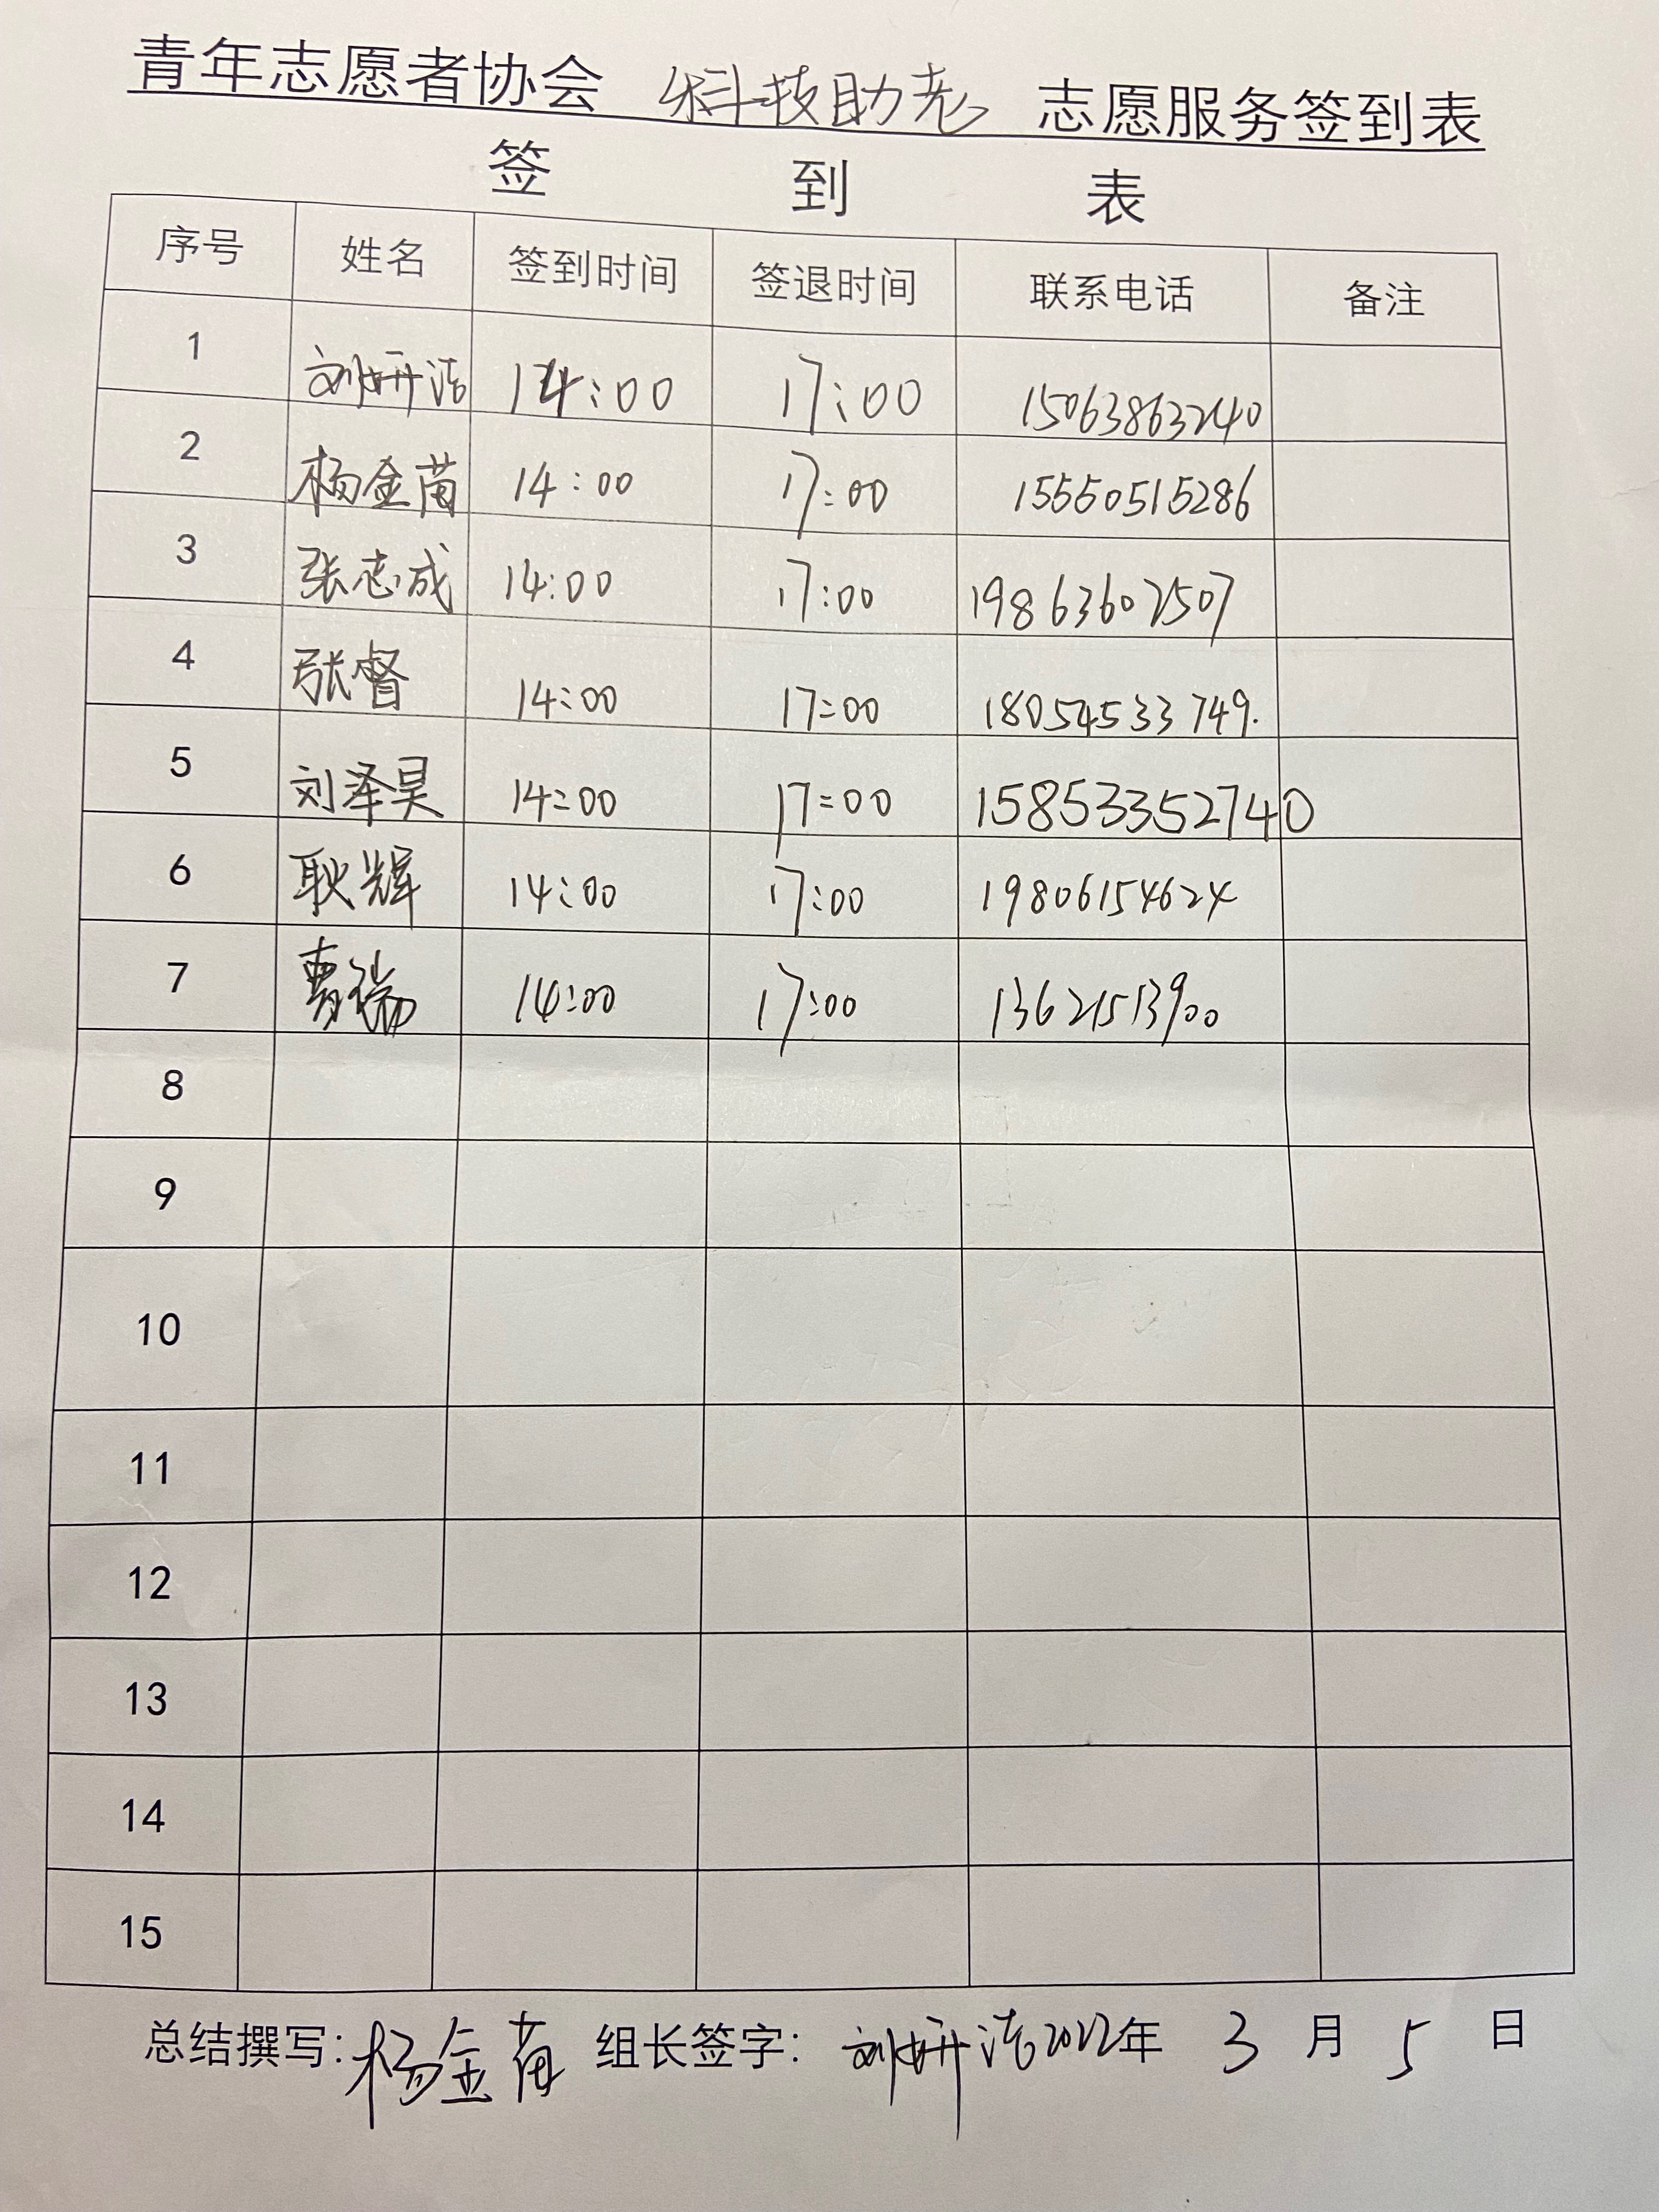 青年志愿者协会 科技助老 志愿服务签到表
签 到 表
序号 姓名 签到时间 签退时间 联系电话 备注
1 刘妍洁 14:00 17:00 15063863240
2 杨金苗 14:00 17:00 15550515286
3 张志成 14:00 17:00 19863602507
4 张督 14:00 17:00 18054533749.
5 刘泽昊 14:00 17:00 15853352740
6 耿辉 14:00 17:00 19806154624
7 曹瑞 14:00 17:00 13621513900
8
9
10
11
12
13
14
15
总结撰写:杨金苗 组长签字: 刘妍洁2022年 3 月 5 日